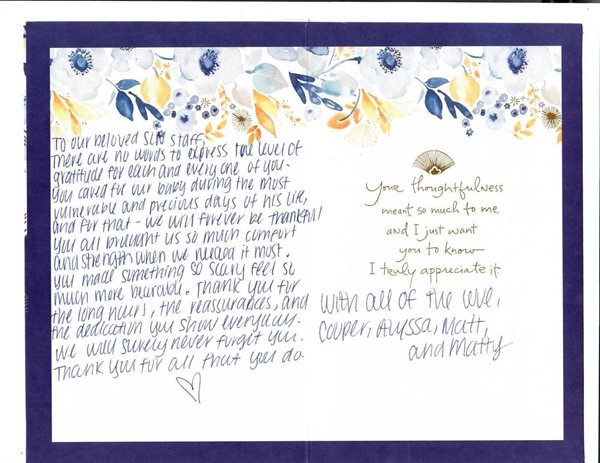 To our beloved SLN staff,
There are no words to express the level of
gratitude for each and every one of you.
You cared for our baby during the most
vulnerable and precious days of his life,
and for that - we will forever be thankful
you all brought us so much comfort
and strength when we needed it most.
you made something so scary feel so
much more bearable. Thank you for
the long hours, the reassurances, and
the dedication you show everyday.
We will surely never forget you.
Thank you for all that you do
Your thoughtfulness
meant so much to me,
and I just want
you to know
I truly appreciate it
with all of the love,
Cooper, Alyssa, Matt,
and Matty